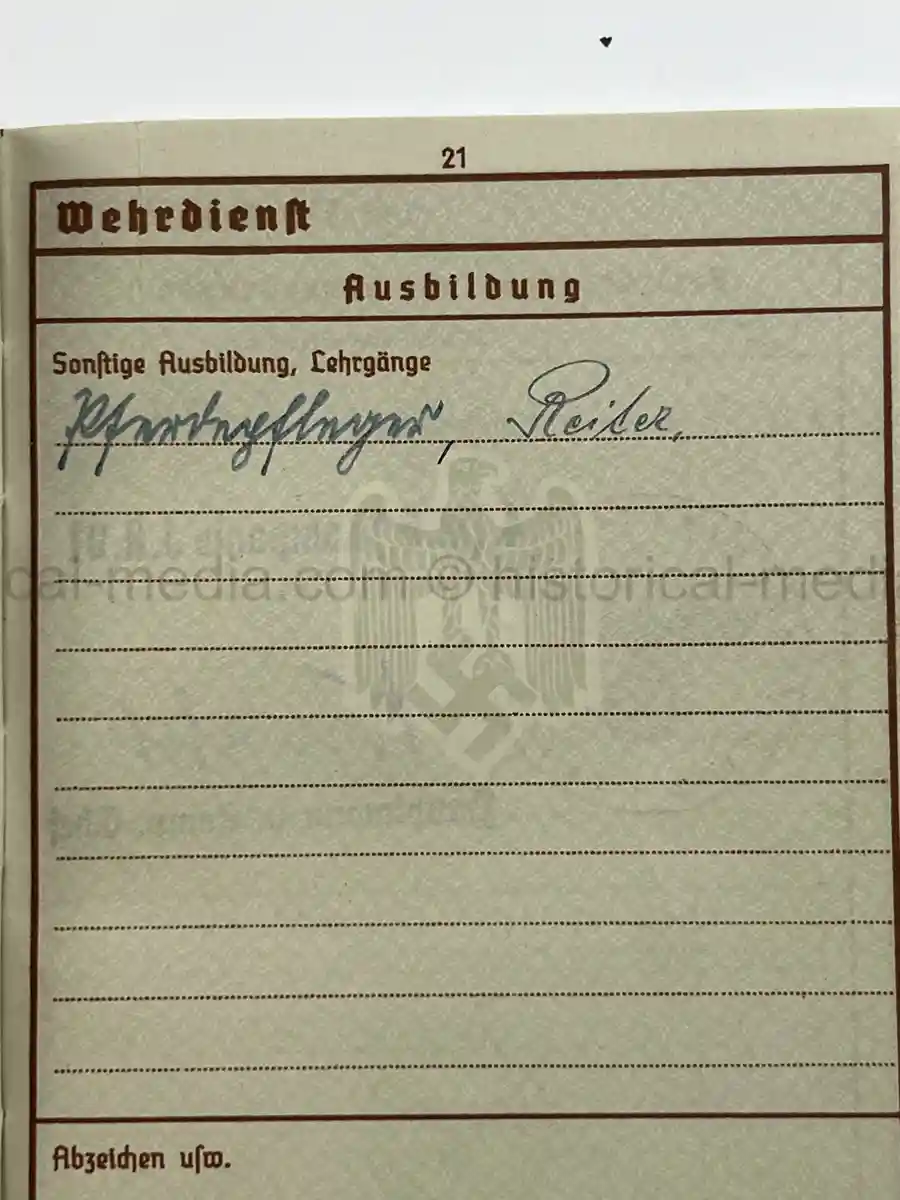 21
Wehrdienst
Ausbildung
Sonstige Ausbildung, Lehrgänge
Pferdepfleger, Reiter,
cal-media.com © historical-media
Abzeichen usw.